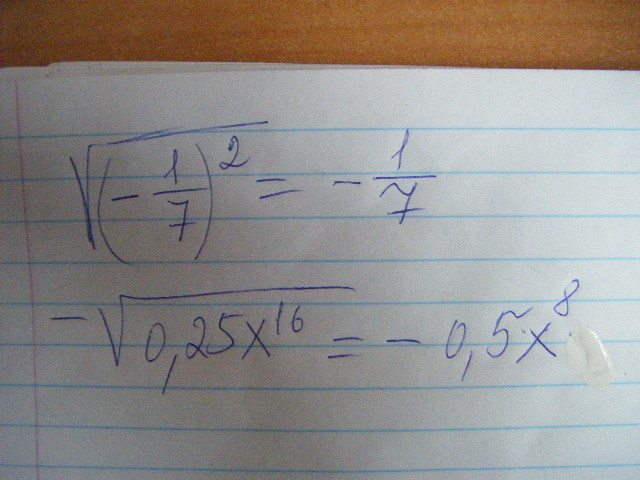 √(-1/7)² = -1/7
-√0,25x¹⁶ = -0,5x⁸